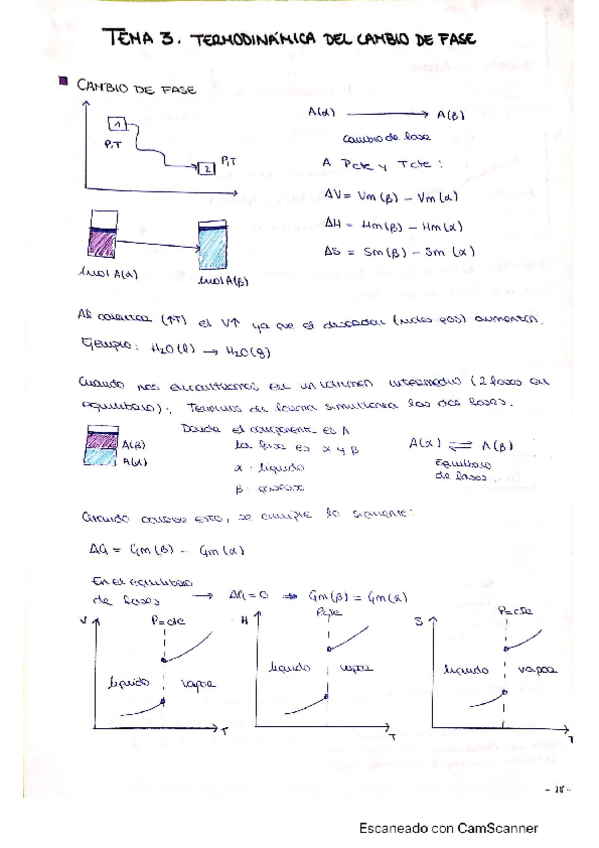 TEMA 3. TERMODINÁMICA DEL CAMBIO DE FASE
CAMBIO DE FASE
1
P,T
2
P,T
A(α) → A(β)
cambio de fase
A Pcte y Tcte:
ΔV = Vm(β) - Vm(α)
ΔH = Hm(β) - Hm(α)
ΔS = Sm(β) - Sm(α)
1mol A(α)
1mol A(β)
Al calentar (↑T) el V↑ ya que el desorden (más gas) aumenta.
Ejemplo: H2O(l) → H2O(g)
Cuando nos encontramos en un volumen intermedio (2 fases en
equilibrio): Tenemos de forma simultánea las dos fases.
A(β)
A(α)
Donde el componente es A
la fase es α y β
α: líquido
β: gaseosa
A(α) ⇌ A(β)
Equilibrio
de fases
Cuando ocurre esto, se cumple lo siguiente:
ΔG = Gm(β) - Gm(α)
En el equilibrio
de fases → ΔG = 0 ⇒ Gm(β) = Gm(α)
V
P=cte
líquido
vapor
T
H
P=cte
líquido
vapor
T
S
P=cte
líquido
vapor
T
- 18 -
Escaneado con CamScanner